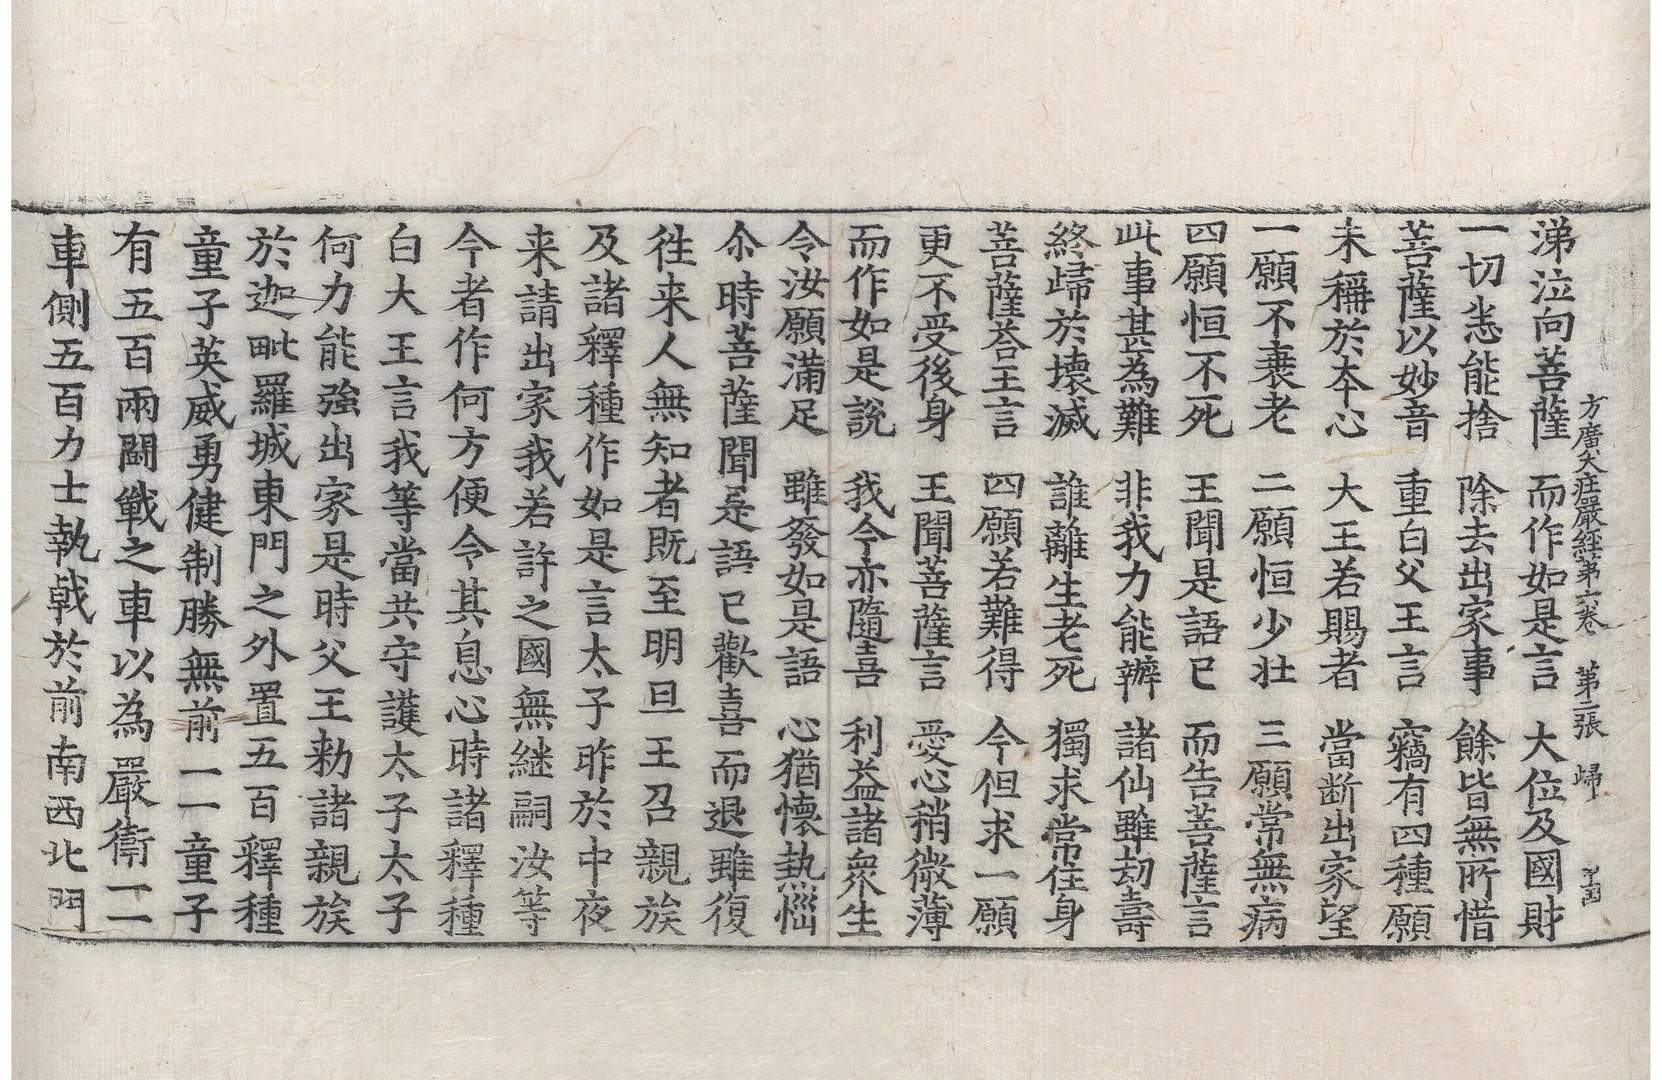 方廣大庄嚴經第六卷　第二張　歸
涕泣向菩薩　而作如是言　大位及國財
一切悉能捨　除去出家事　餘皆無所惜
菩薩以妙音　重白父王言　竊有四種願
未稱於本心　大王若賜者　當斷出家望
一願不衰老　二願恒少壯　三願常無病
四願恒不死　王聞是語已　而告菩薩言
此事甚為難　非我力能辦　諸仙雖劫壽
終歸於壞滅　誰離生老死　獨求常住身
菩薩荅王言　四願若難得　今但求一願
更不受後身　王聞菩薩言　愛心稍微薄
而作如是說　我今亦隨喜　利益諸衆生
令汝願滿足　雖發如是語　心猶懷熱惱
尒時菩薩聞是語已歡喜而退雖復
往来人無知者既至明旦王召親族
及諸釋種作如是言太子昨於中夜
来請出家我若許之國無継嗣汝等
今者作何方便令其息心時諸釋種
白大王言我等當共守護太子太子
何力能強出家是時父王勑諸親族
於迦毗羅城東門之外置五百釋種
童子英威勇健制勝無前一一童子
有五百兩鬪戰之車以為嚴衛一一
車側五百力士執戟於前南西北門